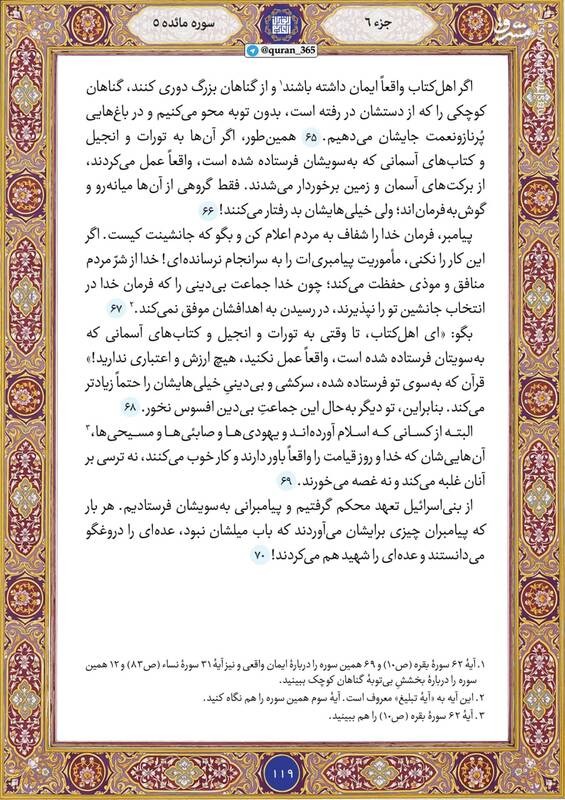 جزء ۶
سوره مائده ۵
@quran_365
مشرق
اگر اهل‌کتاب واقعاً ایمان داشته باشند۱ و از گناهان بزرگ دوری کنند، گناهان
کوچکی را که از دستشان در رفته است، بدون توبه محو می‌کنیم و در باغ‌هایی
پُرنازونعمت جایشان می‌دهیم. ۶۵ همین‌طور، اگر آن‌ها به تورات و انجیل
و کتاب‌های آسمانی که به‌سویشان فرستاده شده است، واقعاً عمل می‌کردند،
از برکت‌های آسمان و زمین برخوردار می‌شدند. فقط گروهی از آن‌ها میانه‌رو و
گوش‌به‌فرمان‌اند؛ ولی خیلی‌هایشان بد رفتار می‌کنند! ۶۶
پیامبر، فرمان خدا را شفاف به مردم اعلام کن و بگو که جانشینت کیست. اگر
این کار را نکنی، مأموریت پیامبری‌ات را به سرانجام نرسانده‌ای! خدا از شرّ مردم
منافق و موذی حفظت می‌کند؛ چون خدا جماعت بی‌دینی را که فرمان خدا در
انتخاب جانشین تو را نپذیرند، در رسیدن به اهدافشان موفق نمی‌کند.۲ ۶۷
بگو: «ای اهل‌کتاب، تا وقتی به تورات و انجیل و کتاب‌های آسمانی که
به‌سویتان فرستاده شده است، واقعاً عمل نکنید، هیچ ارزش و اعتباری ندارید!»
قرآن که به‌سوی تو فرستاده شده، سرکشی و بی‌دینیِ خیلی‌هایشان را حتماً زیادتر
می‌کند. بنابراین، تو دیگر به‌حال این جماعتِ بی‌دین افسوس نخور. ۶۸
البتـه از کسـانی کـه اسـلام آورده‌انـد و یهودی‌هـا و صابئی‌هـا و مسـیحی‌ها،۳
آن‌هایی‌شان که خدا و روز قیامت را واقعاً باور دارند و کار خوب می‌کنند، نه ترسی بر
آنان غلبه می‌کند و نه غصه می‌خورند. ۶۹
از بنی‌اسرائیل تعهد محکم گرفتیم و پیامبرانی به‌سویشان فرستادیم. هر بار
که پیامبران چیزی برایشان می‌آوردند که باب میلشان نبود، عده‌ای را دروغگو
می‌دانستند و عده‌ای را شهید هم می‌کردند! ۷۰
۱. آیهٔ ۶۲ سورهٔ بقره (ص۱۰) و ۶۹ همین سوره را دربارهٔ ایمان واقعی و نیز آیهٔ ۳۱ سورهٔ نساء (ص۸۳) و ۱۲ همین
سوره را دربارهٔ بخششِ بی‌توبهٔ گناهان کوچک ببینید.
۲. این آیه به «آیهٔ تبلیغ» معروف است. آیهٔ سوم همین سوره را هم نگاه کنید.
۳. آیهٔ ۶۲ سورهٔ بقره (ص۱۰) را هم ببینید.
۱۱۹